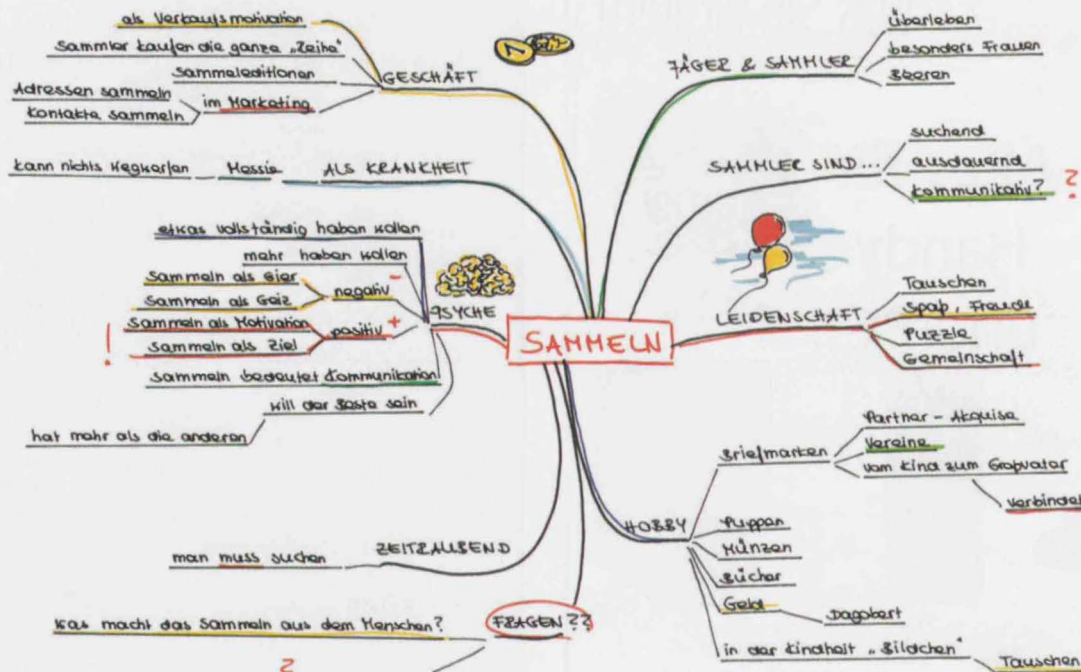 als Verkaufsmotivation
Sammler kaufen die ganze „Reihe"
Sammeleditionen
Adressen sammeln
Kontakte sammeln
im Marketing
GESCHÄFT
kann nichts wegwerfen
Messie
ALS KRANKHEIT
etwas vollständig haben wollen
mehr haben wollen
Sammeln als Gier
Sammeln als Geiz
negativ -
Sammeln als Motivation
Sammeln als Ziel
positiv +
!
PSYCHE
Sammeln bedeutet Kommunikation
will der Beste sein
hat mehr als die anderen
man muss suchen
ZEITRAUBEND
Was macht das Sammeln aus dem Menschen?
?
FRAGEN??
SAMMELN
JÄGER & SAMMLER
überleben
besonders Frauen
Beeren
SAMMLER SIND...
suchend
ausdauernd
kommunikativ?
?
LEIDENSCHAFT
Tauschen
Spaß, Freude
Puzzle
Gemeinschaft
HOBBY
Briefmarken
Partner - Akquise
Vereine
vom Kind zum Großvater
verbindet
Puppen
Münzen
Bücher
Geld
Dagobert
in der Kindheit „Bildchen"
Tauschen